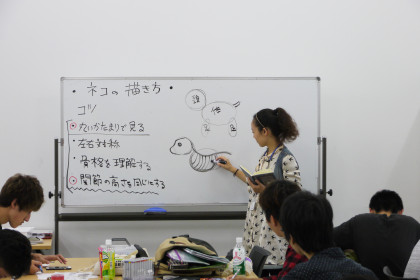 ・ネコの描き方・
コツ
丸いかたまりで見る
左右対称
骨格を理解する
関節の高さを同じにする